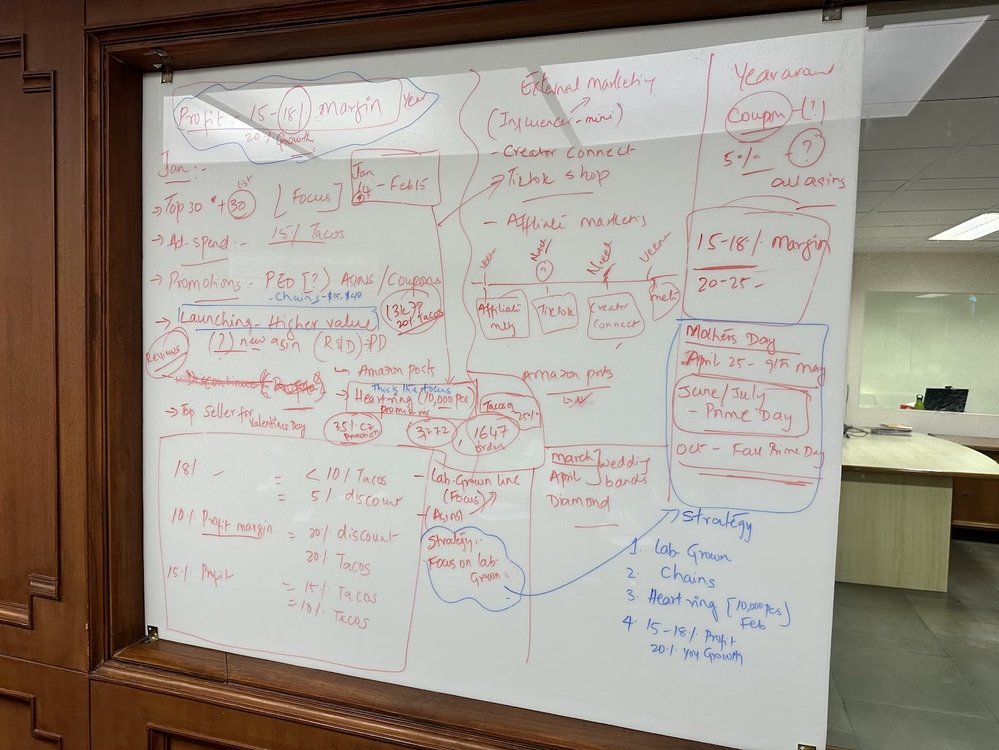 Profit - 15-18% Margin Year
20% Growth
Jan :-
→ Top 30 * + 30 list [Focus]
Jan
14 - Feb 15
→ Ad-spend :- 15% Tacos
→ Promotions - PED [?] Asins / Coupons
- Chains -
→ Launching - Higher value
20% Tacos
(?) new asin (R&D) PD
Reviews
↳ Amazon posts
This is the focus
→ Heart ring (10,000 pcs)
promo
→ Top Seller for
Valentines Day
35% CZ
Promotion
3,272
1647
orders
Tacos
25%
18% - = < 10% Tacos
= 5% discount
10% Profit margin = 20% discount
20% Tacos
15% Profit = 15% Tacos
= 10% Tacos
- Lab-Grown line
(Focus)
- (Asins)
Strategy :-
Focus on lab-
Grown.
External marketing
(Influencer - mini)
- Creator Connect
- Tiktok shop
- Affiliate marketing
Need
?
Need
Affiliate
mktg
Tiktok
Creator
Connect
Amazon posts
March
April
Diamond
wedding
bands
Year around
Coupon - (?)
5% - ?
all asins
15-18% Margin
20-25 -
Mothers Day
April 25 - 9th may
June/July
- Prime Day
Oct - Fall Prime Day
Strategy
1. Lab Grown
2. Chains
3. Heart ring [10,000 pcs]
Feb
4. 15-18% Profit
20% YOY Growth